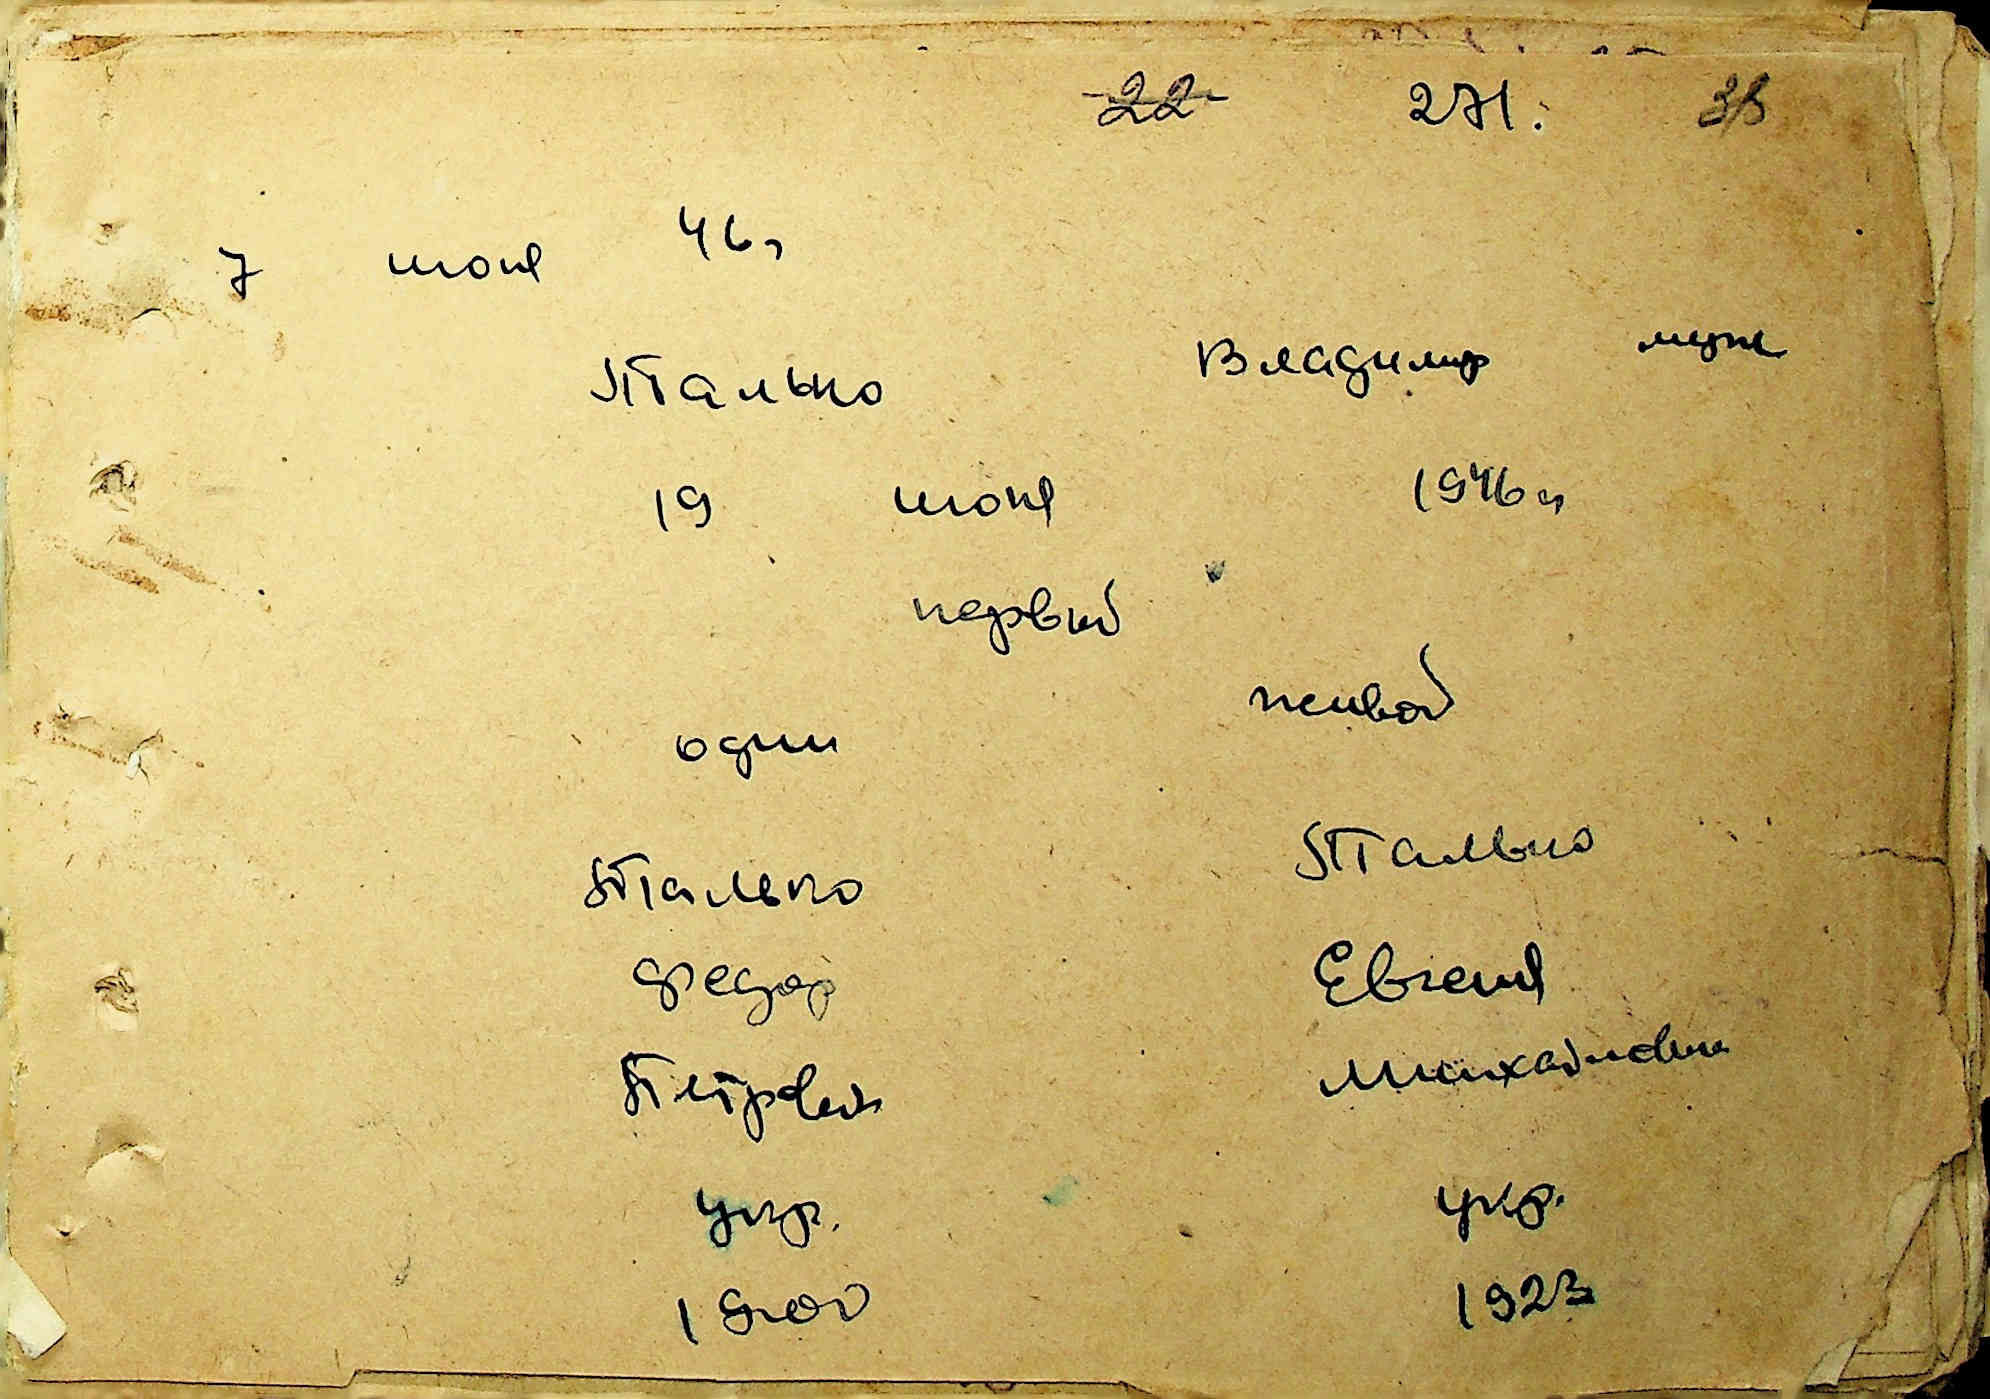 22 271.
7 июня 46 г
Палько Владимир муж
19 июня 1946 г
первый
один живой
Палько Палько
Федор Евгения
Петрович Михайловна
укр. укр.
1923